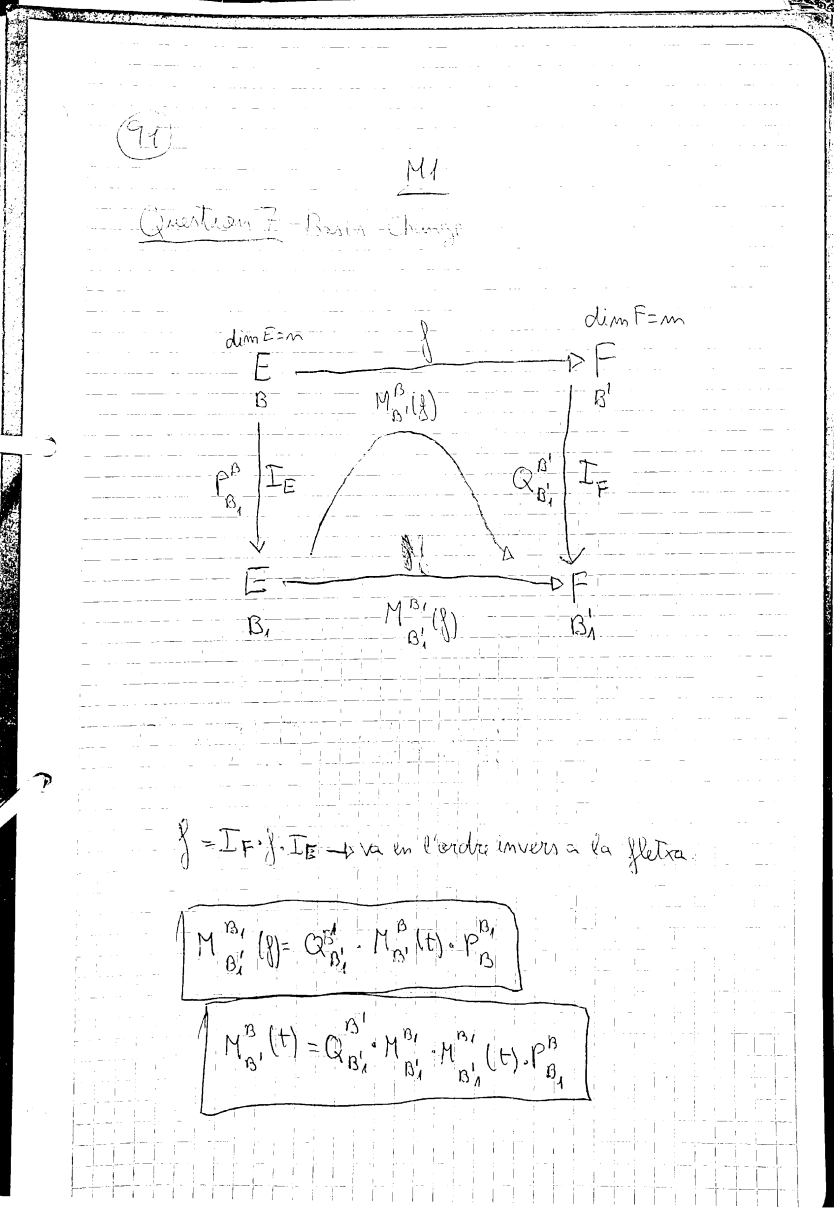 91
M1
Question 7 - Basis - Change
dim E=n
dim F=m
E f F
B M^B_B'(f) B'
P^B_B₁ I_E Q^B'_B'₁ I_F
E F
B₁ M^B₁_B'₁(f) B'₁
f = I_F · f · I_E → va en l'ordre invers a la fletxa.
M^B₁_B'₁(f) = Q^B'_B'₁ · M^B_B'(t) · P^B₁_B
M^B_B'(t) = Q^B'_B'₁ · M^B₁_B'₁ · M^B₁_B'₁(t) · P^B_B₁